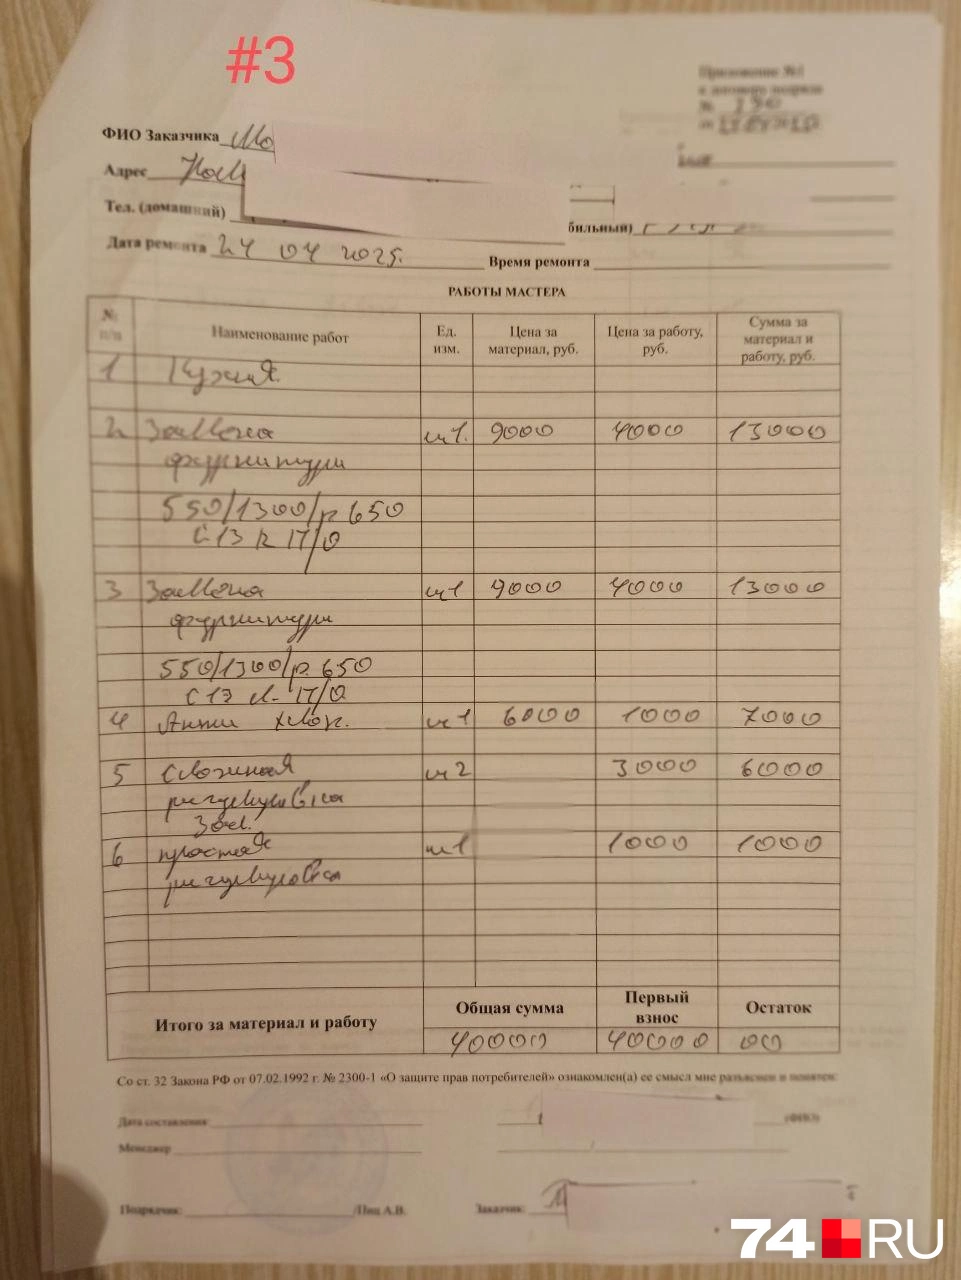 #3
Приложение №1
к договору подряда
№ 190
от
ФИО Заказчика
Адрес
Тел. (домашний)
бильный)
Дата ремонта 24 04 2025. Время ремонта
РАБОТЫ МАСТЕРА
№ п/п Наименование работ Ед. изм. Цена за материал, руб. Цена за работу, руб. Сумма за материал и работу, руб.
1 Кухня.
2 Замена шт1. 9000 4000 13000
фурнитуры
550/1300/р 650
П/О
3 Замена шт1 9000 4000 13000
фурнитуры
550/1300/р. 650
П/О
4 Анти хлоп. шт1 6000 1000 7000
5 Сложная шт2 3000 6000
регулировка
6 простая шт1 1000 1000
регулировка
Итого за материал и работу Общая сумма Первый взнос Остаток
40000 40000 00
Со ст. 32 Закона РФ от 07.02.1992 г. № 2300-1 «О защите прав потребителей» ознакомлен(а) ее смысл мне разъяснен и понятен:
Дата составления (ФИО)
Менеджер
Подрядчик: /Пиц А.В. Заказчик:
74 RU